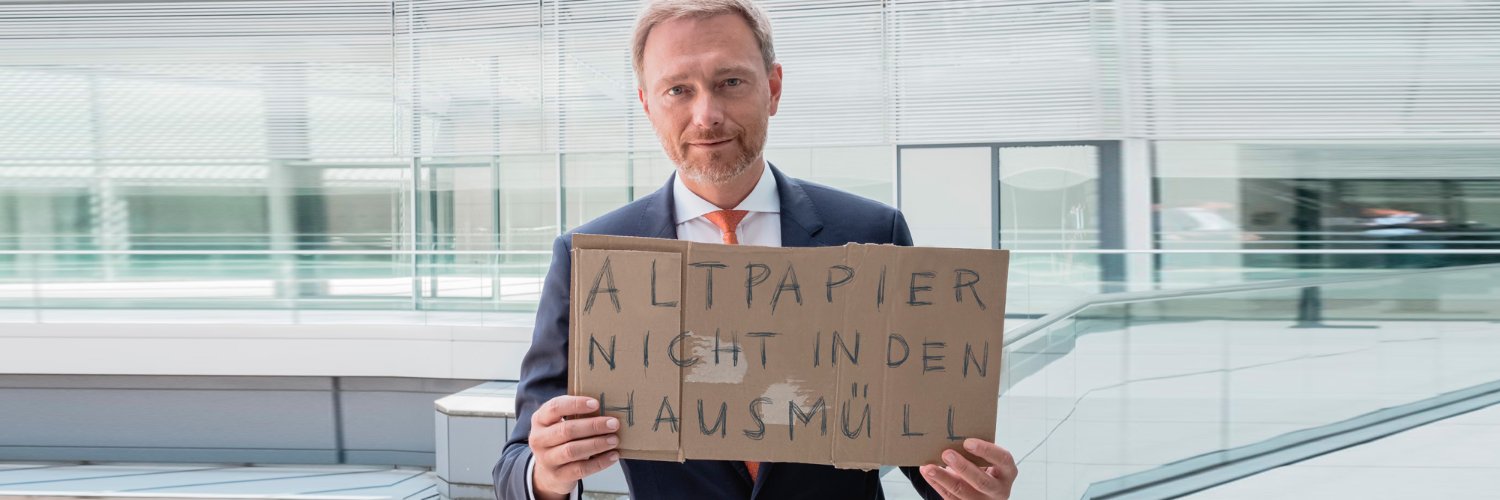 ALTPAPIER
NICHT IN DEN
HAUSMÜLL